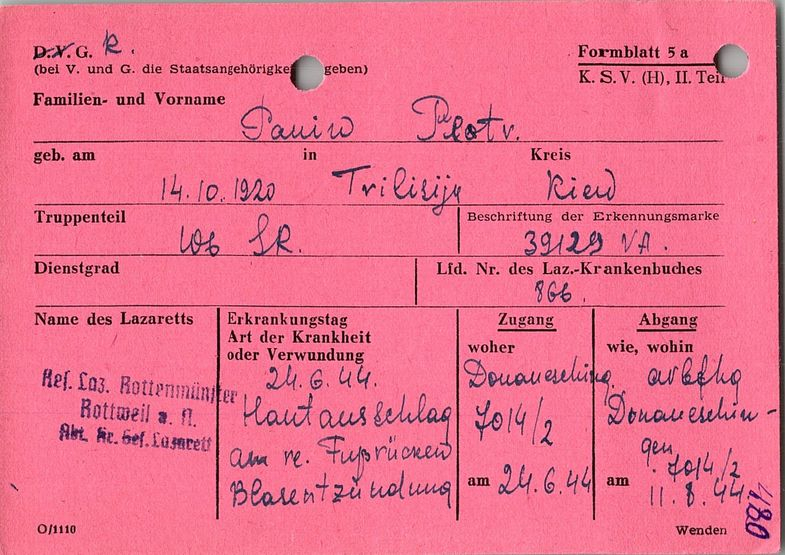 D.V. G. R.
Formblatt 5 a
(bei V. und G. die Staatsangehörigkei geben)
K. S. V. (H), II. Teil
Familien- und Vorname
Paniw Piotr.
geb. am in Kreis
14.10.1920 Trilisiju Kiew
Truppenteil
Beschriftung der Erkennungsmarke
SR.
39129 VA.
Dienstgrad
Lfd. Nr. des Laz.-Krankenbuches
866.
Name des Lazaretts
Ref. Laz. Rottenmünster
Rottweil a. N.
Abt. Kr. Gef. Lazarett
Erkrankungstag
Art der Krankheit
oder Verwundung
24.6.44.
Hautausschlag
am re. Fußrücken
Blasentzündung
Zugang
woher
Donaueschin.
7014/2
am 24.6.44
Abgang
wie, wohin
arbfhg
Donaueschin-
gen
7014/2
am 11.8.44
480
O/1110
Wenden